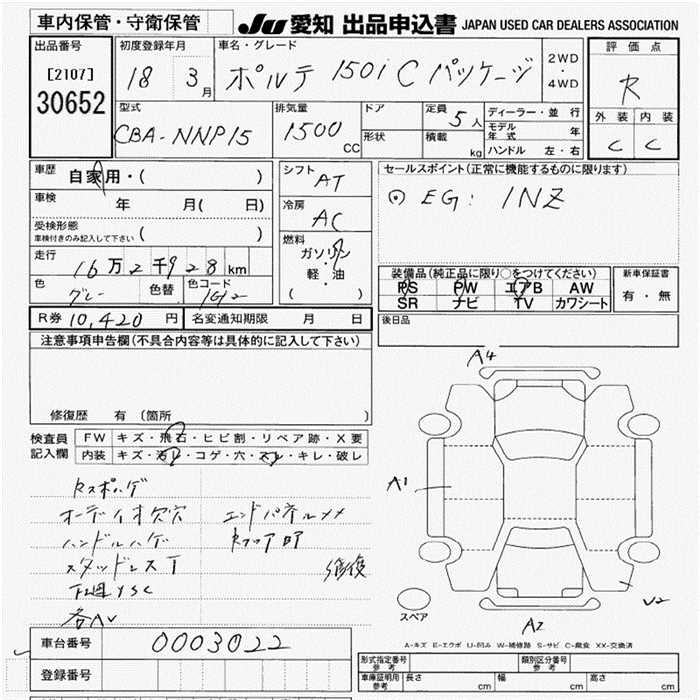 車内保管・守衛保管
JU 愛知 出品申込書 JAPAN USED CAR DEALERS ASSOCIATION
出品番号
[2107]
30652
初度登録年月
18 3月
車名・グレード
ポルテ 150i C パッケージ
2WD
・
4WD
評価点
R
外装 内装
C C
型式
CBA-NNP15
排気量
1500 CC
ドア
形状
定員
5人
積載
kg
ディーラー・並行
モデル年式 年
ハンドル 左・右
車歴
自家用・( )
車検
年 月( 日)
受検形態
車検付きのみ記入して下さい ( )
走行
16万2千928km
色
グレー
色替
色コード
1G2
シフト
AT
冷房
AC
燃料
ガソリン
軽・油
( )
セールスポイント(正常に機能するものに限ります)
EG: 1NZ
装備品(純正品に限り○をつけてください)
PS PW エアB AW
SR ナビ TV カワシート
新車保証書
有・無
後日品
R券 10,420円
名変通知期限 月 日
注意事項申告欄(不具合内容等は具体的に記入して下さい)
修復歴 有 (箇所 )
検査員
記入欄
FW キズ・飛石・ヒビ割・リペア跡・X要
内装 キズ・汚レ・コゲ・穴・スレ・キレ・破レ
オーディオ欠穴 エンドパネル
ハンドルハゲ
スタッドレスT 修復
A4
A1
A2
スペア
A-キズ E-エクボ U-凹み W-補修跡 S-サビ C-腐食 XX-交換済
車台番号
0003022
登録番号
形式指定番号
参考
類別区分番号
参考
車庫証明用
参考
長さ cm 幅 cm 高さ cm